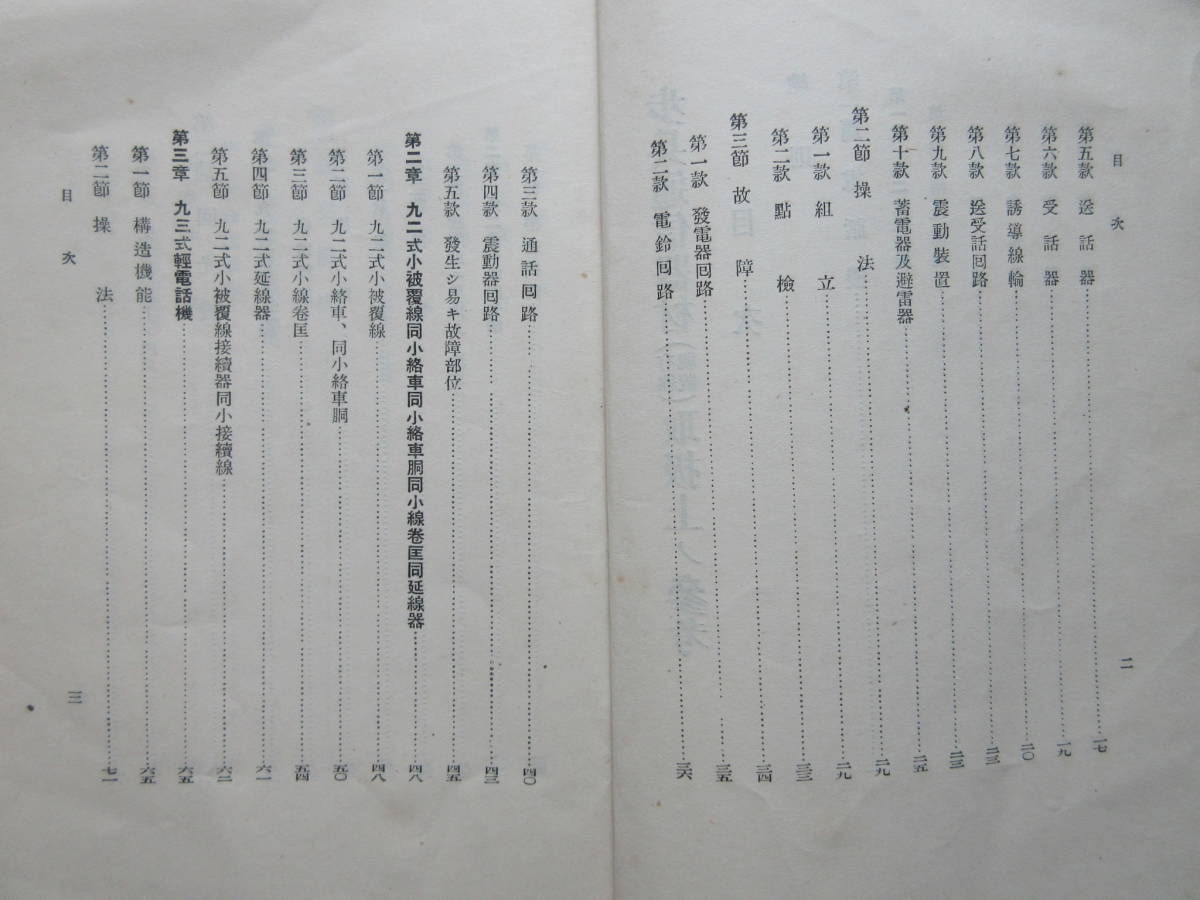 目次
第五款 送話器……一七
第六款 受話器……一九
第七款 誘導線輪……二〇
第八款 送受話回路……二三
第九款 震動裝置……二三
第十款 蓄電器及避雷器……二五
第二節 操法……二九
第一款 組立……二九
第二款 點檢……三三
第三節 故障……三四
第一款 發電器回路……三五
第二款 電鈴回路……三六
二
第三款 通話回路……四〇
第四款 震動器回路……四三
第五款 發生シ易キ故障部位……四五
第二章 九二式小被覆線同小絡車同小絡車胴同小線卷匡同延線器……四八
第一節 九二式小被覆線……四八
第二節 九二式小絡車、同小絡車胴……五〇
第三節 九二式小線卷匡……五四
第四節 九二式延線器……六一
第五節 九二式小被覆線接續器同小接續線……六二
第三章 九三式輕電話機……六五
第一節 構造機能……六五
第二節 操法……七一
目次
三